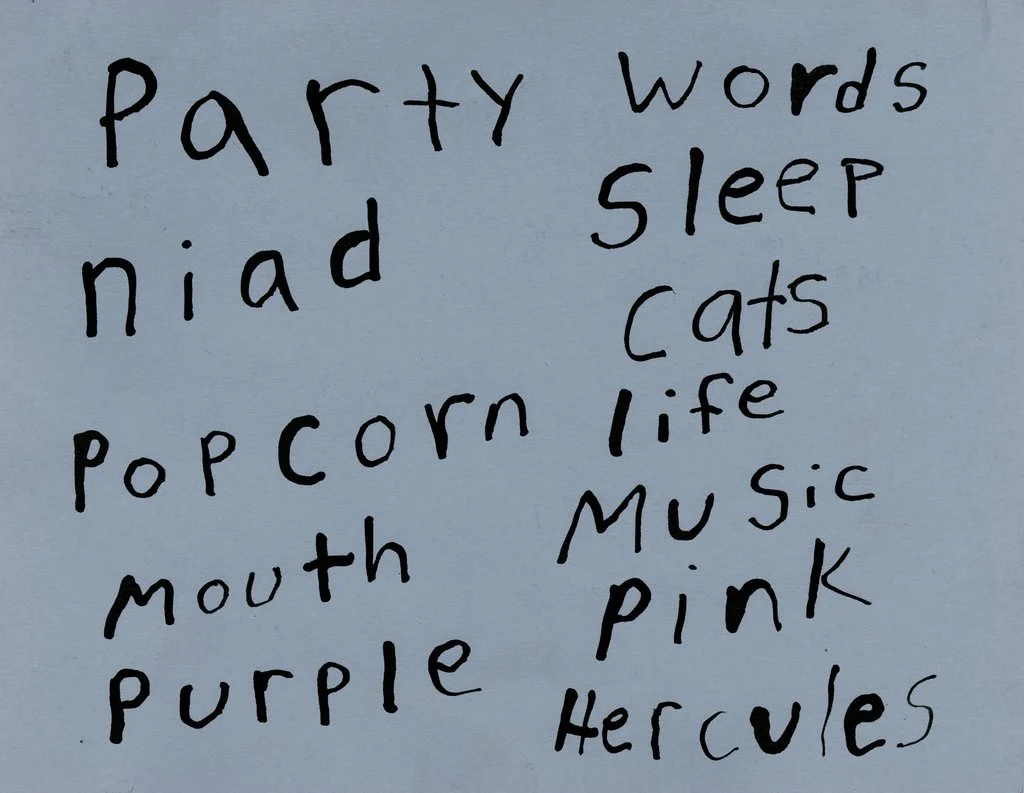 Party
niad
Popcorn
mouth
purple
words
Sleep
cats
life
Music
pink
Hercules